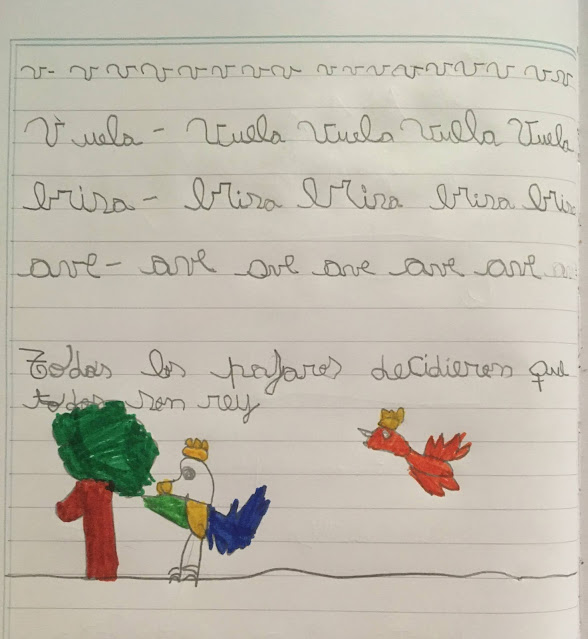 v- v v v v v v v v v v v v v v v v
Vuela - Vuela Vuela Vuela Vuela
brisa - brisa brisa brisa bris
ave - ave ave ave ave ave a
Todos los pajaros decidieron que
todos son rey